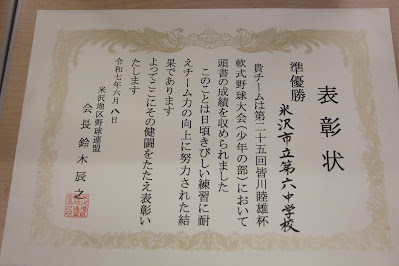 表彰状
準優勝
米沢市立第六中学校
貴チームは第二十五回皆川睦雄杯
軟式野球大会(少年の部)において
頭書の成績を収められました
このことは日頃きびしい練習に耐
えチーム力の向上に努力された結
果であります
よってここにその健闘をたたえ表彰い
たします
令和七年六月八日
米沢地区野球連盟
会長鈴木辰之